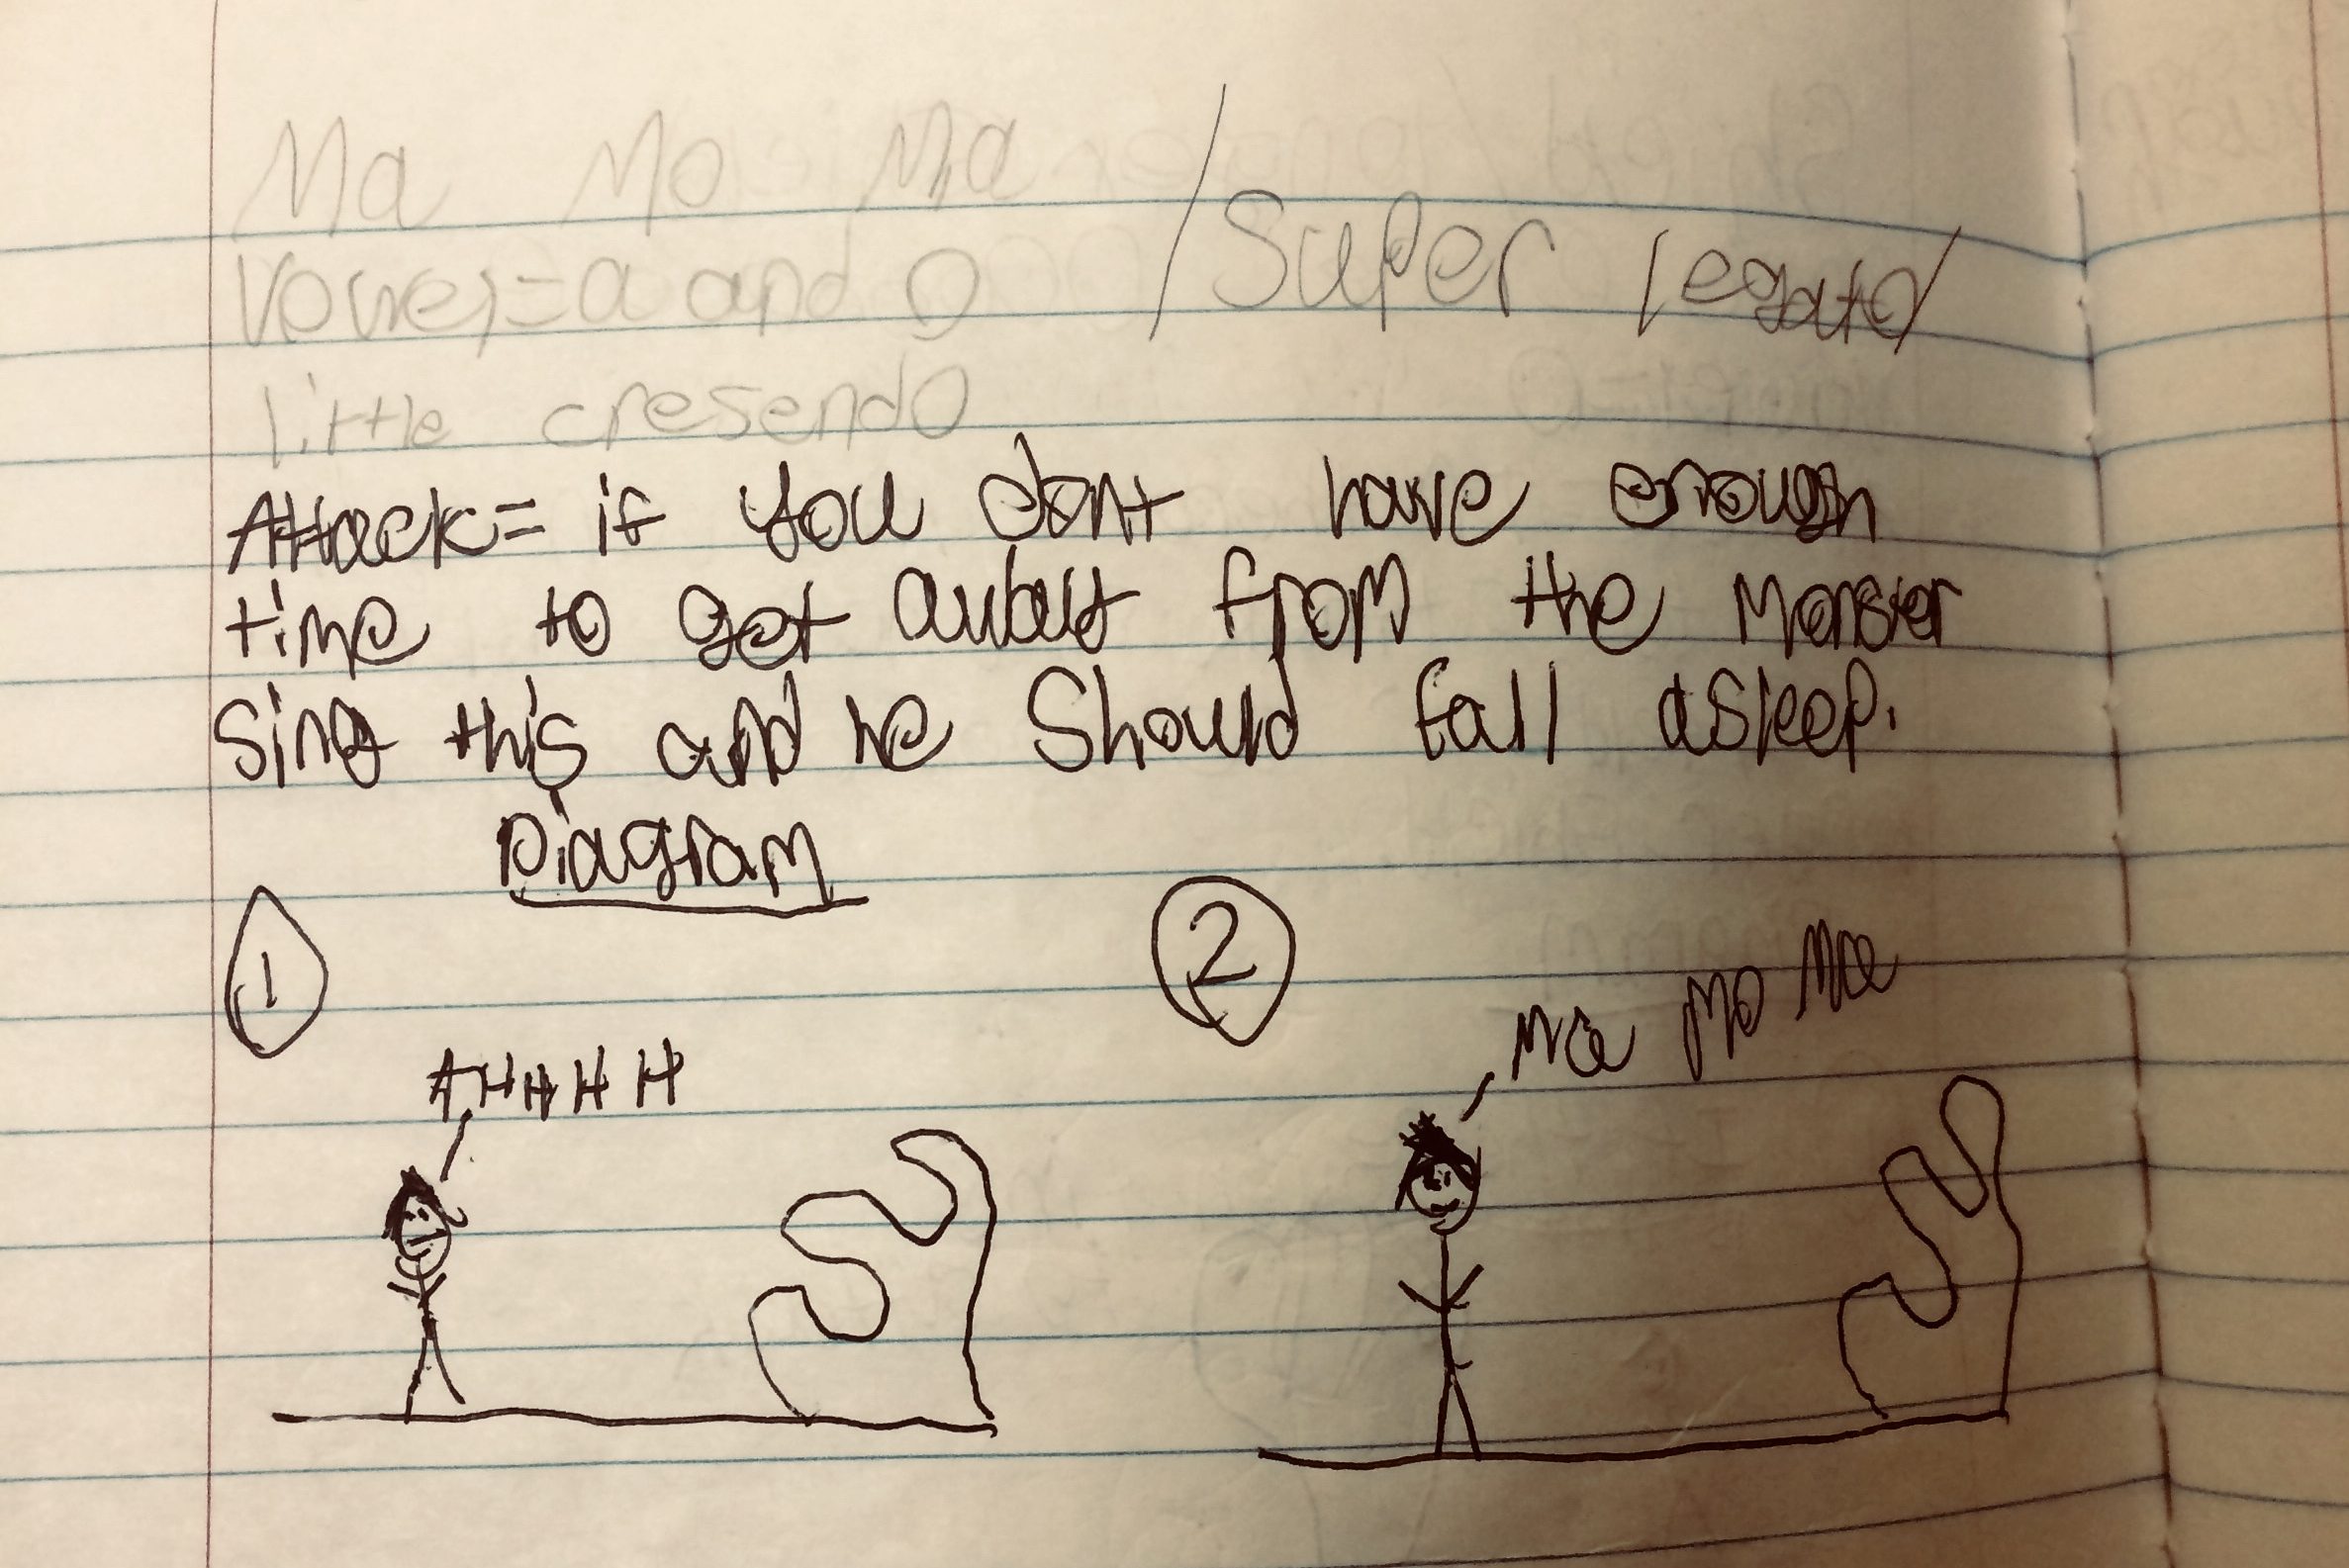 Ma Mo Ma
Vowel=a and O /Super legato/
little cresendo
Attack= if you dont have enough
time to get away from the Monster
Sing this and he Should fall asleep.
Diagram
1
2
AHHHH
Ma Mo Ma